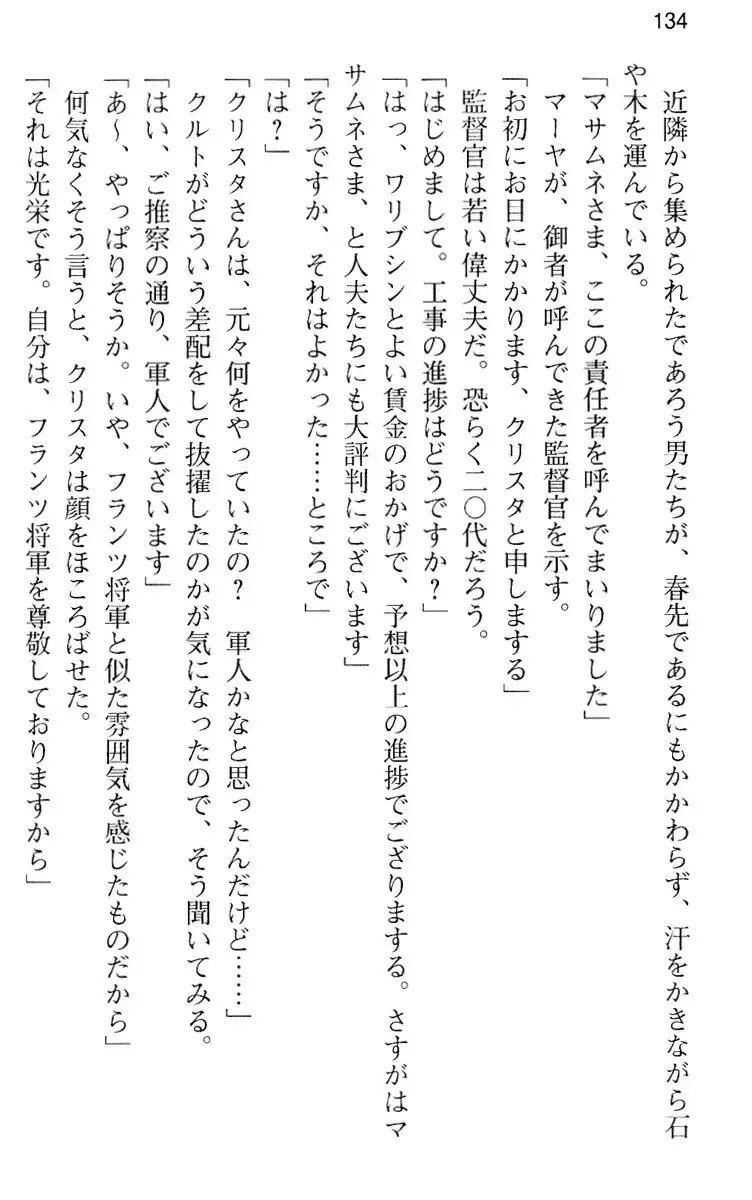 134
近隣から集められたであろう男たちが、春先であるにもかかわらず、汗をかきながら石
や木を運んでいる。
「マサムネさま、ここの責任者を呼んでまいりました」
マーヤが、御者が呼んできた監督官を示す。
「お初にお目にかかります、クリスタと申しまする」
監督官は若い偉丈夫だ。恐らく二〇代だろう。
「はじめまして。工事の進捗はどうですか？」
「はっ、ワリブシンとよい賃金のおかげで、予想以上の進捗でござりまする。さすがはマ
サムネさま、と人夫たちにも大評判にございます」
「そうですか、それはよかった……ところで」
「は？」
「クリスタさんは、元々何をやっていたの？　軍人かなと思ったんだけど……」
クルトがどういう差配をして抜擢したのかが気になったので、そう聞いてみる。
「はい、ご推察の通り、軍人でございます」
「あ～、やっぱりそうか。いや、フランツ将軍と似た雰囲気を感じたものだから」
何気なくそう言うと、クリスタは顔をほころばせた。
「それは光栄です。自分は、フランツ将軍を尊敬しておりますから」